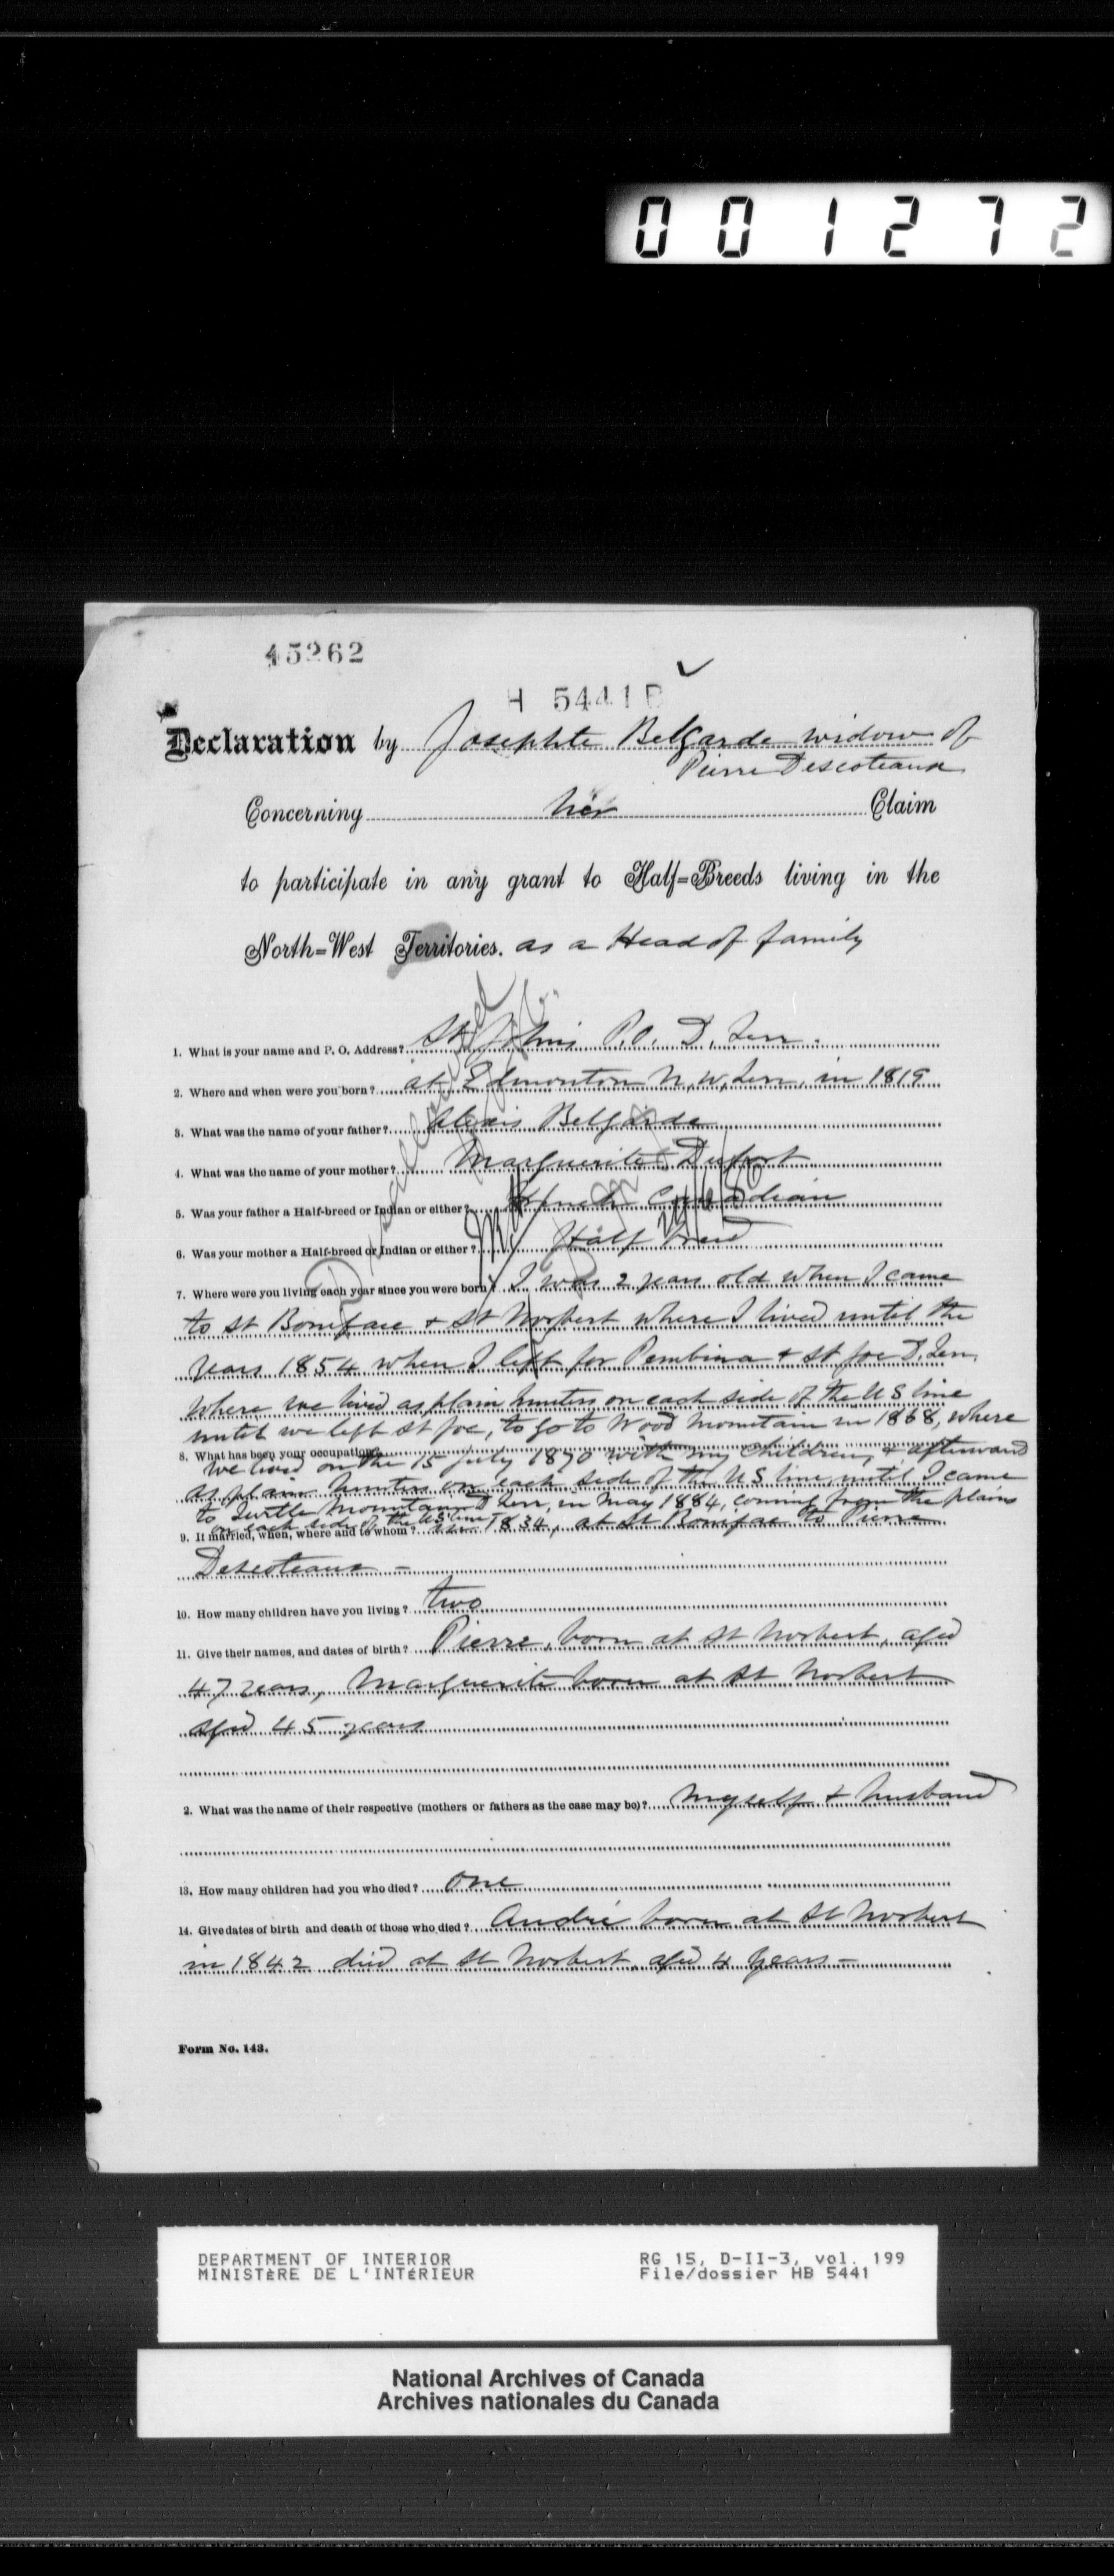 001272
45262
H 5441 B
Declaration by Josephte Belgarde widow of
Pierre Descoteaux
Concerning her Claim
to participate in any grant to Half=Breeds living in the
North=West Territories. as a Head of family
1. What is your name and P. O. Address? St Johns P.O. D. Terr.
2. Where and when were you born? at Edmonton N.W. Terr, in 1819
3. What was the name of your father? Alexis Belgarde
4. What was the name of your mother? Marguerite Dufort
5. Was your father a Half-breed or Indian or either? French Canadian
6. Was your mother a Half-breed or Indian or either? Half Breed
7. Where were you living each year since you were born? I was 2 years old when I came
to St Boniface & St Norbert where I lived until the
years 1854 when I left for Pembina & St Joe D. Terr.
where we lived as plain hunters on each side of the US line
until we left St Joe, to go to Wood Mountain in 1868, where
8. What has been your occupation
we lived on the 15 July 1870 with my children, & afterward
as plain hunters on each side of the US line until I came
to Turtle Mountain D Terr, in May 1884, coming from the plains
on each side of the US line
9. If married, when, where and to whom? in 1834, at St Boniface to Pierre
Descoteaux -
10. How many children have you living? two
11. Give their names, and dates of birth? Pierre, born at St Norbert, aged
47 years, Marguerite born at St Norbert
aged 45 years
2. What was the name of their respective (mothers or fathers as the case may be)? Myself & husband
13. How many children had you who died? One
14. Give dates of birth and death of those who died? André born at St Norbert
in 1842 died at St Norbert, aged 4 years -
Form No. 143.
DEPARTMENT OF INTERIOR RG 15, D-II-3, vol. 199
MINISTÈRE DE L'INTÉRIEUR File/dossier HB 5441
National Archives of Canada
Archives nationales du Canada